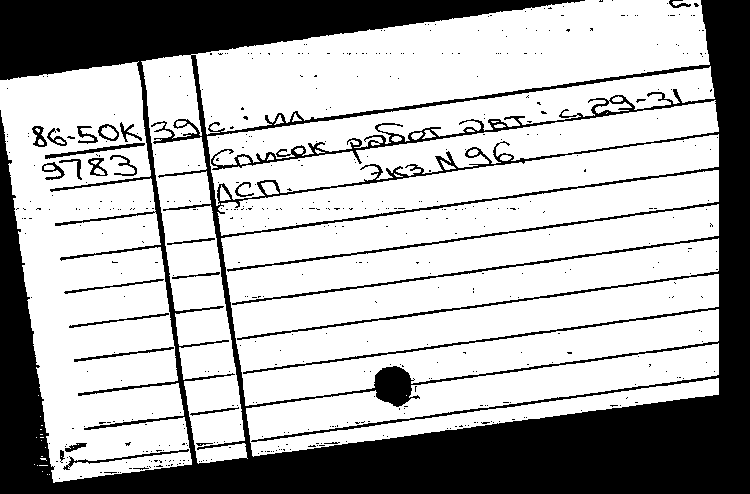 86-50К 39 с.: ил.
9783 Список работ авт.: с. 29-31
ДСП. Экз. N 96.
5